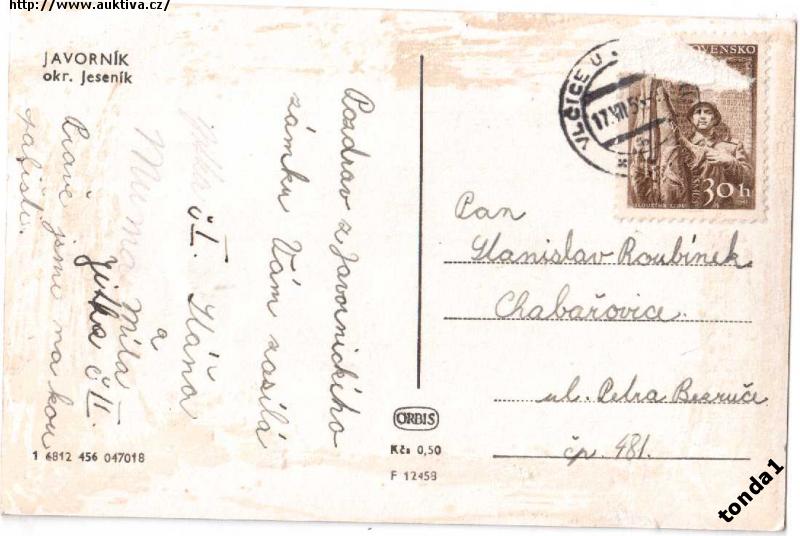 http://www.auktiva.cz/
JAVORNÍK
okr. Jeseník
Pozdrav z Javornického
zámku Vám zasílá
Jitka č I. Stáňa
a
Mirma Míla
Jitka č II.
Právě jsme na kou
pališti.
1 6812 456 047018
ORBIS
Kčs 0,50
F 12458
VLČICE U
17.VII.5
SLOVENSKO
30 h
Pan
Stanislav Roubínek
Chabařovice.
ul. Petra Bezruče
čp. 481.
tonda1